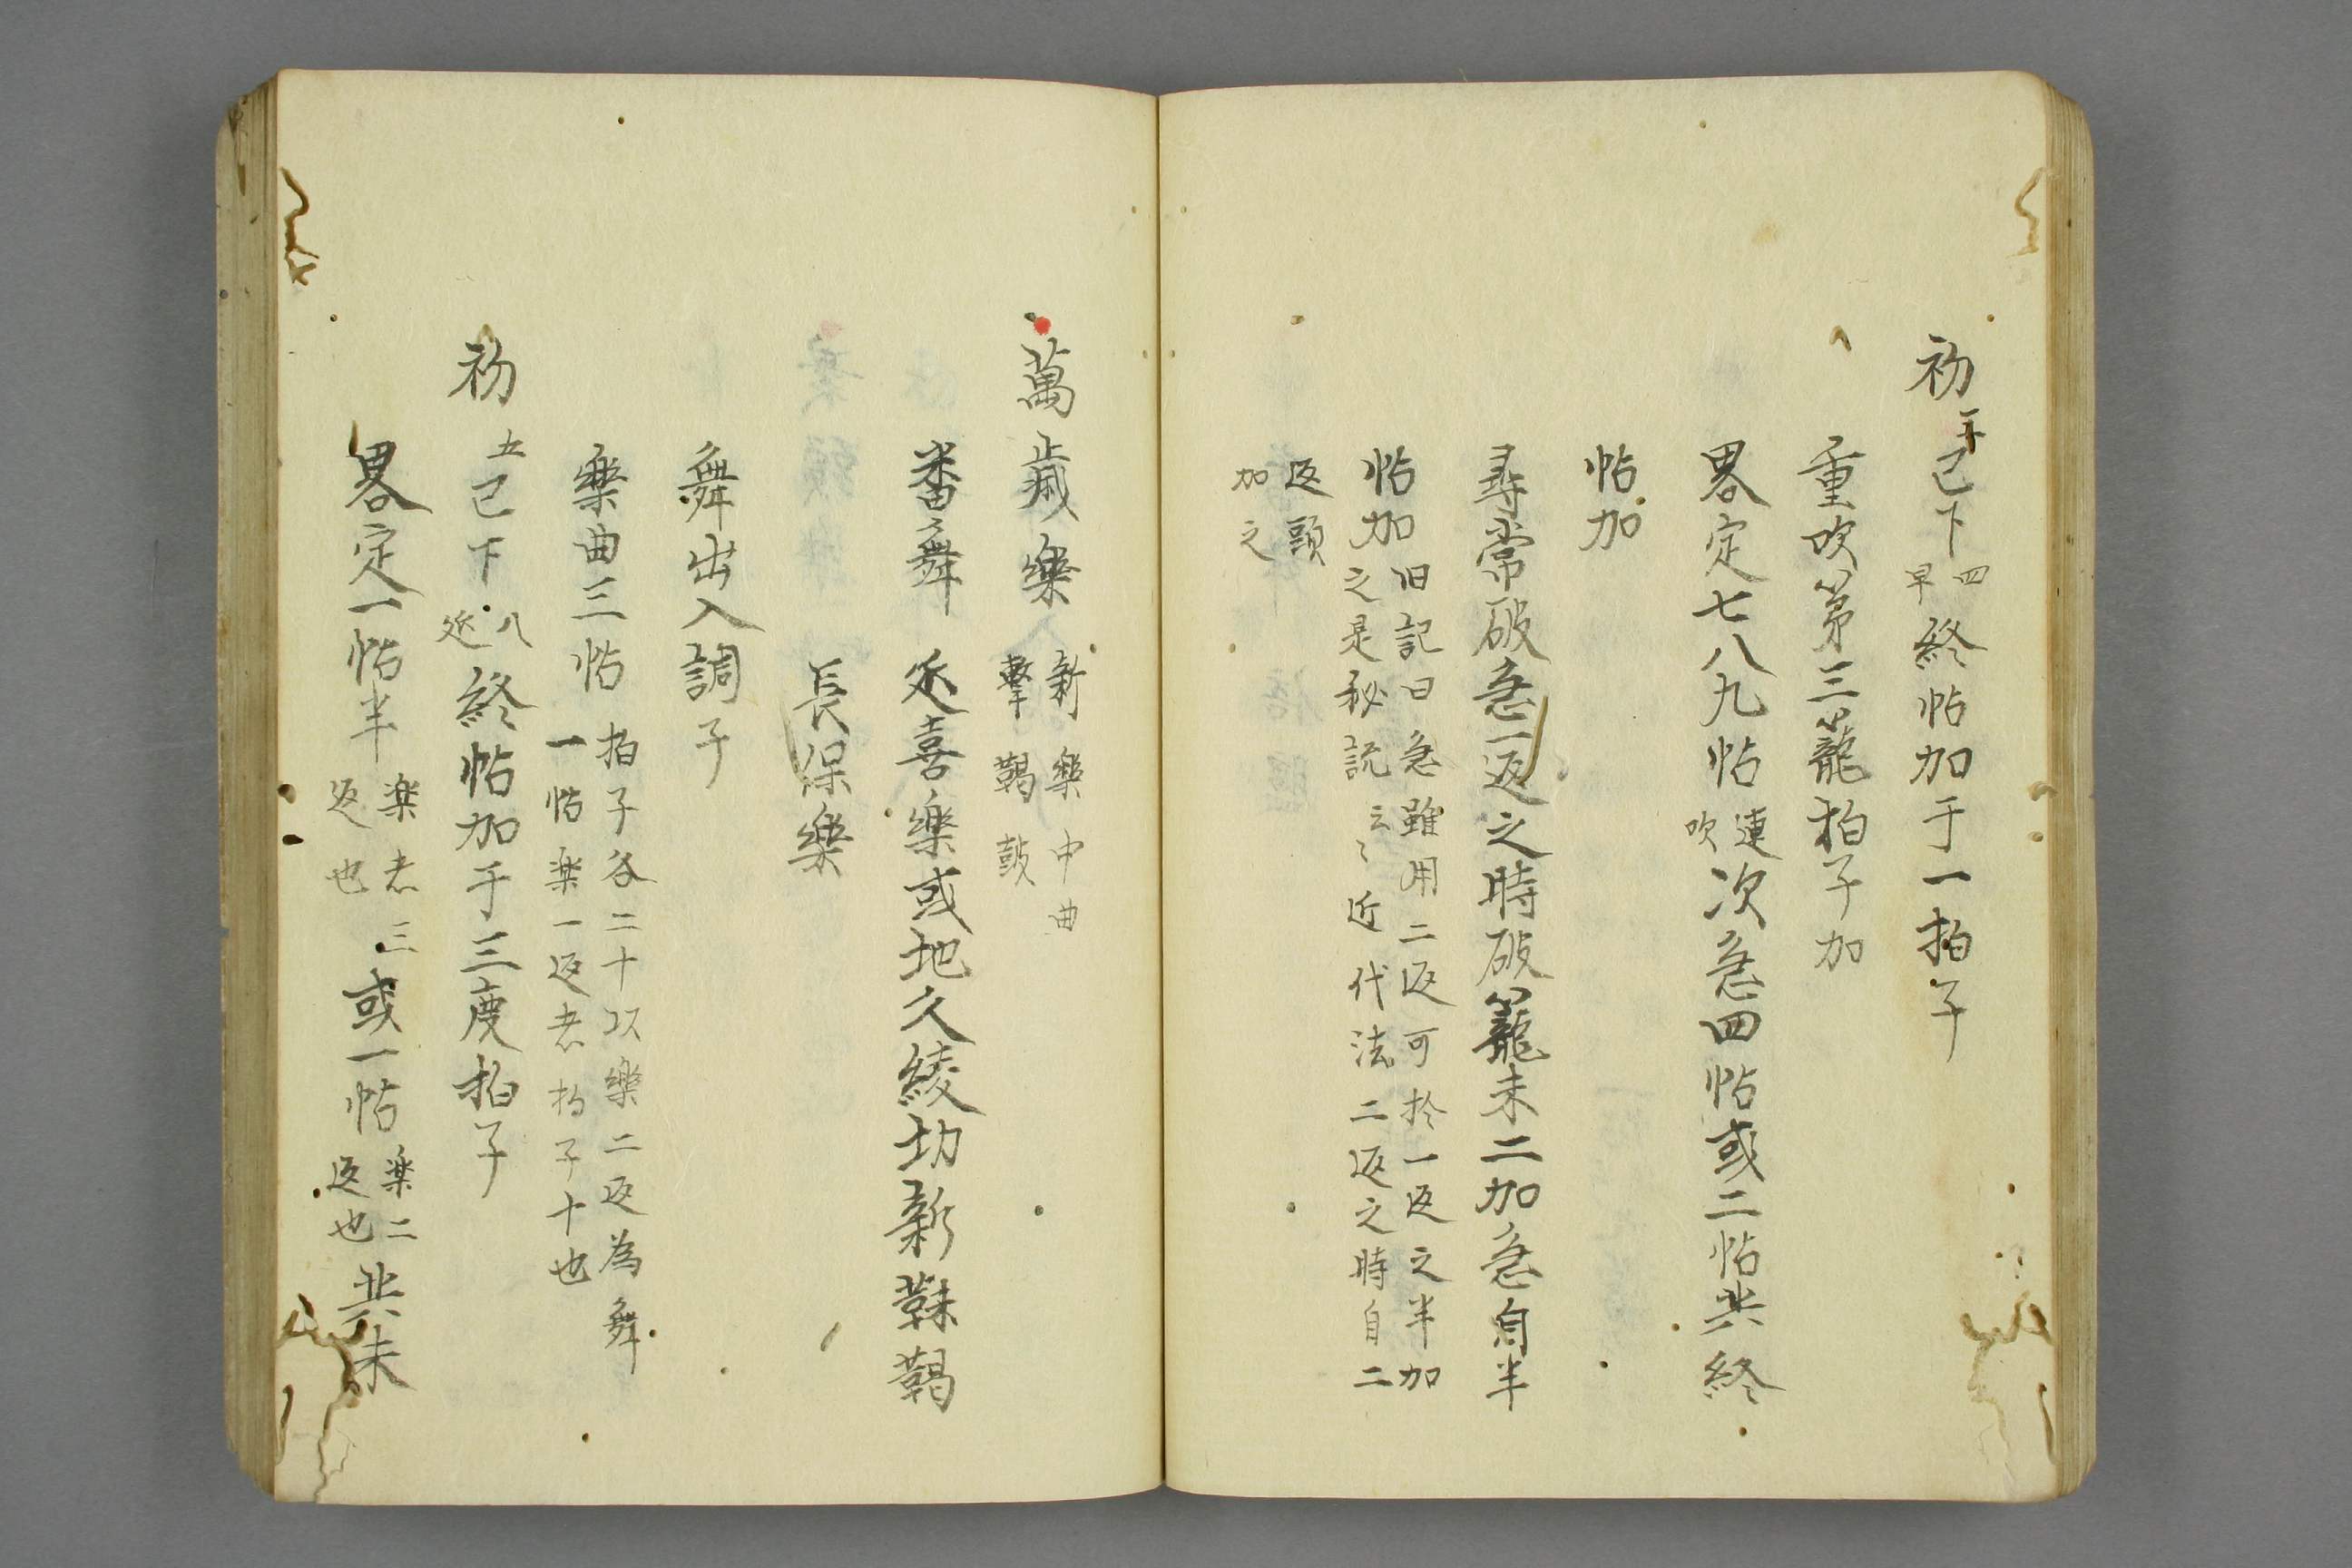 初五己下四早終帖加于一拍子
重吹第三籠拍子加
畧定七八九帖連吹次急四帖或二帖共終
帖加
尋常破急一返之時破籠未二加急自半
帖加旧記曰急雖用二返可於一返之半加
之是秘説云々近代法二返之時自二
返頭
加之
萬歳樂新樂中曲
撃鞨鼓
番舞延喜樂或地久綾切新靺鞨
長保樂
舞出入調子
樂曲三帖拍子各二十以樂二返為舞
一帖楽一返者拍子十也
初五己下八延終帖加于三度拍子
畧定一帖半楽者三返也或一帖楽二返也共未